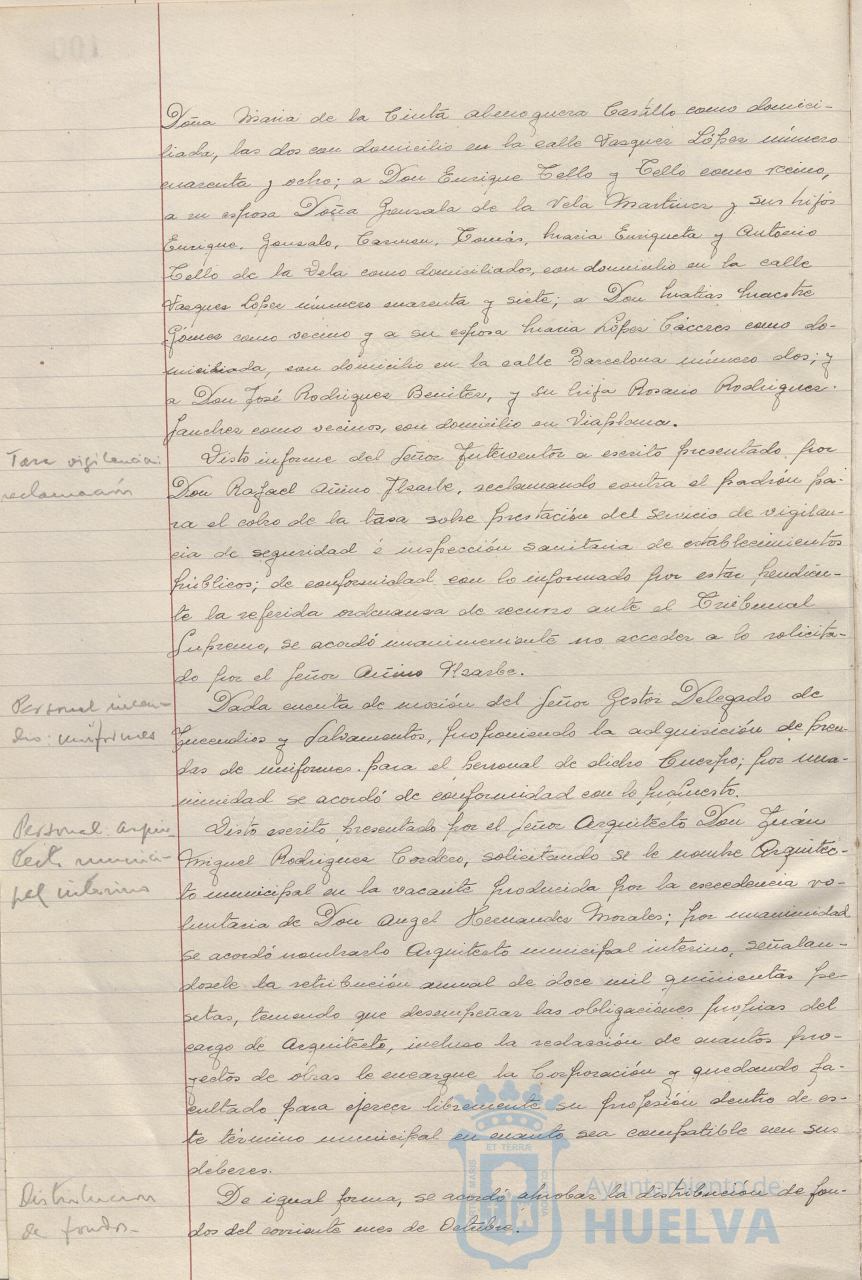 Doña Maria de la Cinta Abenoquera Castillo como domici-
liada, las dos con domicilio en la calle Vasquez López número
cuarenta y ocho; a Don Enrique Tello y Tello como vecino,
a su esposa Doña Gonsala de la Vela Martinez y sus hijos
Enrique, Gonsalo, Carmen, Tomás, Maria Enriqueta y Antonio
Tello de la Vela como domiciliados, con domicilio en la calle
Vasquez López número cuarenta y siete; a Don Matias Maestre
Gómez como vecino y a su esposa Maria López Cáceres como do-
miciliada, con domicilio en la calle Barcelona número dos; y
a Don José Rodriguez Benitez, y su hija Rosario Rodriguez
Sanchez como vecinos, con domicilio en Viaplana.
Tasa vigilancia:
reclamación
Visto informe del Señor Interventor a escrito presentado por
Don Rafael, reclamando contra el padrón pa-
ra el cobro de la tasa sobre prestación del servicio de vigilan-
cia de seguridad é inspección sanitaria de establecimientos
públicos; de conformidad con lo informado por estar pendien-
te la referida ordenanza de recurso ante el Tribunal
Supremo, se acordó unanimemente no acceder a lo solicita-
do por el Señor
Personal incen-
dio: uniformes
Dada cuenta de moción del Señor Gestor Delegado de
Incendios y Salvamentos, proponiendo la adquisición de pren-
das de uniformes para el personal de dicho Cuerpo; por una-
nimidad se acordó de conformidad con lo propuesto.
Personal: Arqui-
tecto munici-
pal interino
Visto escrito presentado por el Señor Arquitecto Don Juán
Miguel Rodriguez Cordero, solicitando se le nombre Arquitec-
to municipal en la vacante producida por la excedencia vo-
luntaria de Don Angel Hernandez Morales; por unanimidad
se acordó nombrarlo Arquitecto municipal interino, señalan-
dosele la retribución anual de doce mil quinientas pe-
setas, teniendo que desempeñar las obligaciones propias del
cargo de Arquitecto, incluso la redacción de cuantos pro-
yectos de obras le encargue la Corporación y quedando fa-
cultado para ejercer libremente su profesión dentro de es-
te término municipal en cuanto sea compatible con sus
deberes.
Distribucion
de fondos.
De igual forma, se acordó aprobar la distribución de fon-
dos del corriente mes de Octubre.
Ayuntamiento de
HUELVA